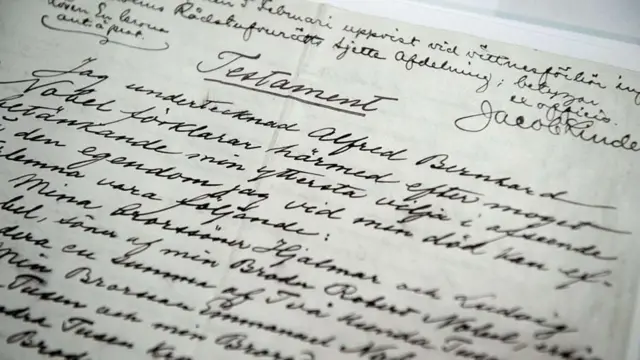 5 Februari uppvist vid vittnesförhör in
Rådstufvurätts sjette Afdelning; betygar
ex officio.
Testament
Jag undertecknad Alfred Bernhard
Nobel förklarar härmed efter moget
betänkande min yttersta vilja i afseende
å den egendom jag vid min död kan ef-
terlemna vara följande:
Mina Brorsöner Hjalmar och Ludvig
söner af min Broder Robert Nobel,
en summa af Två Hundra Tu
Min Brorson Emmanuel Nobel
Tusen och min Brors
Tusen Kro
Brod